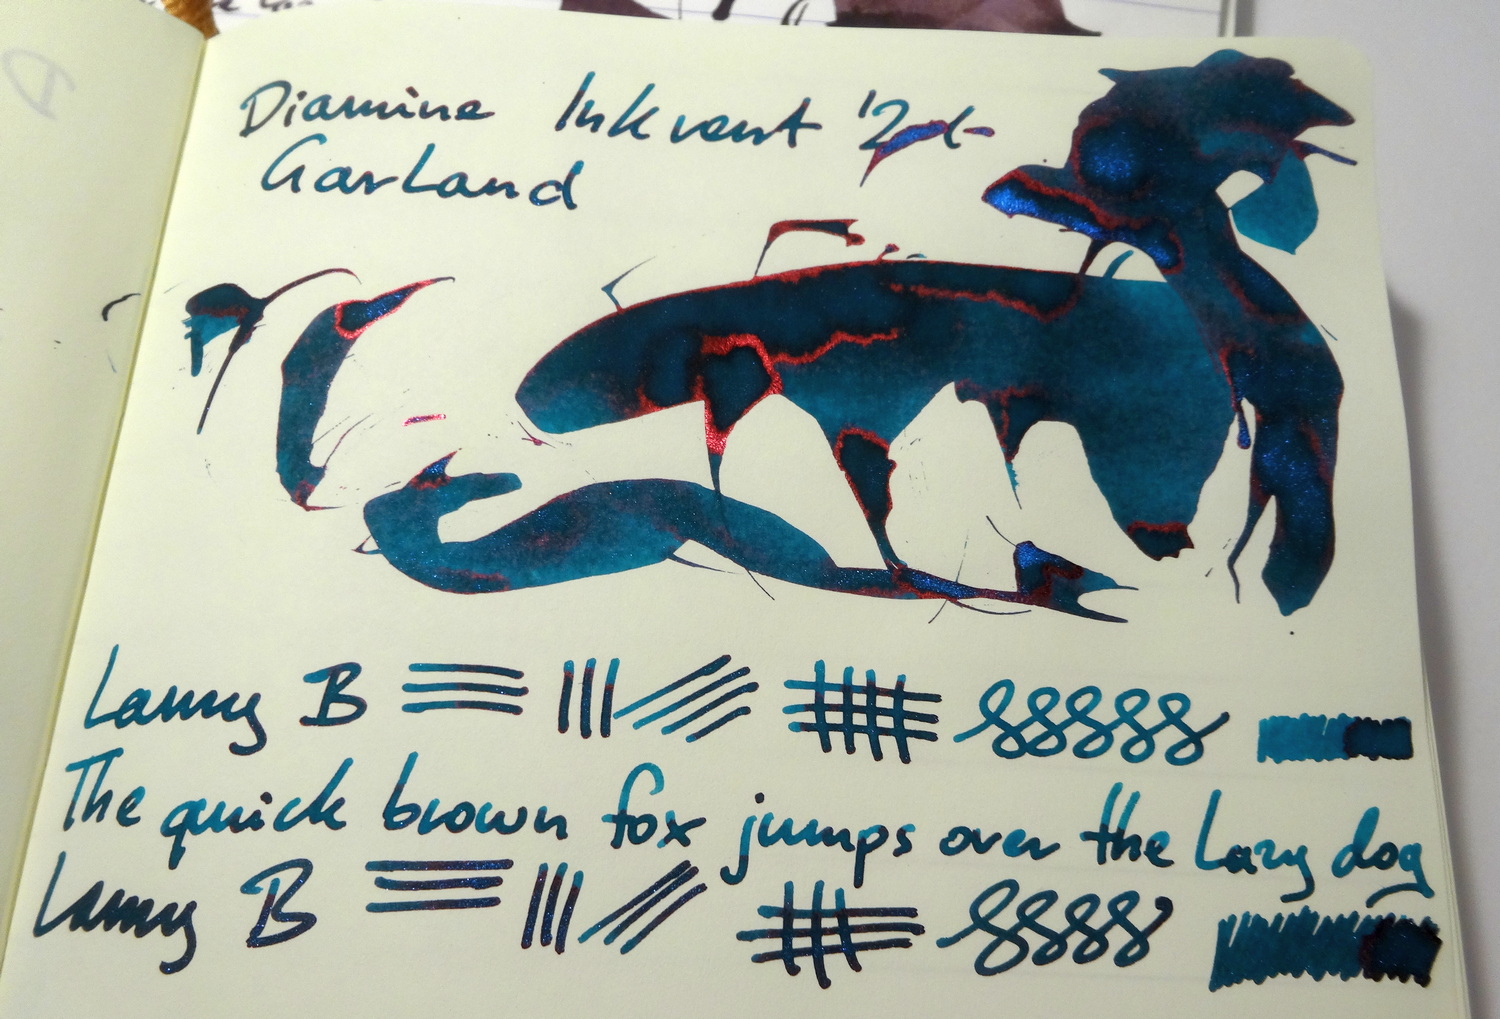 Diamine Inkvent '24
Garland
Lamy B
The quick brown fox jumps over the lazy dog
Lamy B